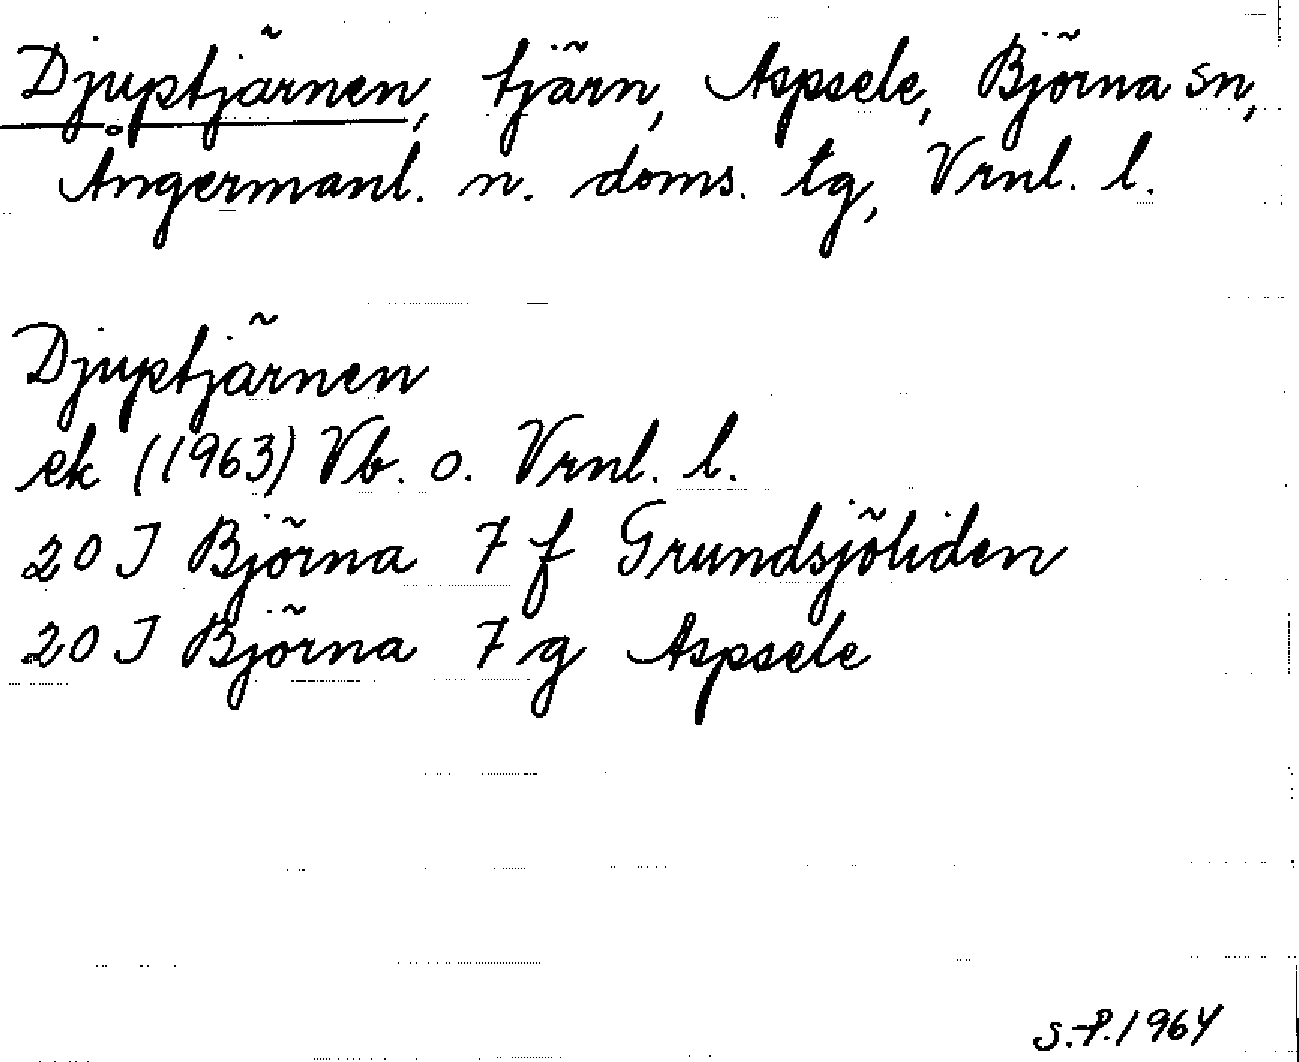 Djuptjärnen, tjärn, Aspsele, Björna sn,
Ångermanl. n. doms. tg, Vrnl. l.
Djuptjärnen
ek (1963) Vb. o. Vrnl. l.
20 J Björna 7 f Grundsjöliden
20 J Björna 7 g Aspsele
S.-P. 1964